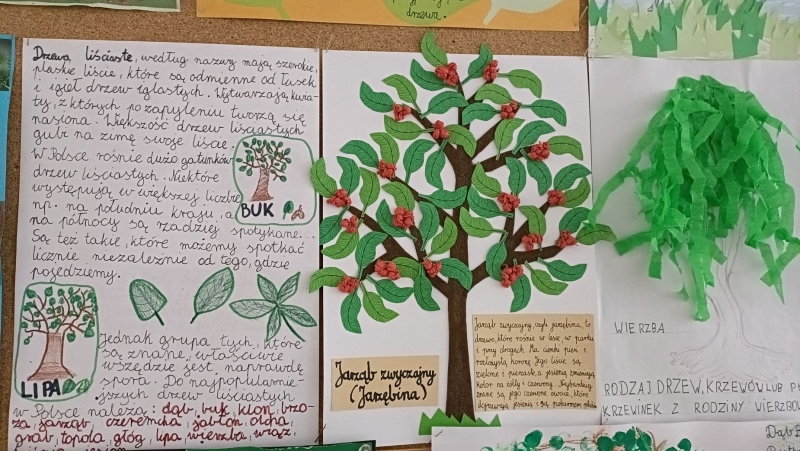 drzewa.
Drzewa liściaste, według nazwy mają szerokie,
płaskie liście, które są odmienne od łusek
i igieł drzew iglastych. Wytwarzają kwia-
ty, z których po zapyleniu tworzą się
nasiona. Większość drzew liściastych
gubi na zimę swoje liście.
W Polsce rośnie dużo gatunków
drzew liściastych. Niektóre
występują w większej liczbie
np. na południu kraju, a
na północy są rzadziej spotykane.
Są też takie, które możemy spotkać
licznie niezależnie od tego, gdzie
pojedziemy.
BUK
LIPA
Jednak grupa tych, które
są znane, właściwie
wszędzie jest naprawdę
spora. Do najpopularnie-
jszych drzew liściastych
w Polsce należą: dąb, buk, klon, brzo-
za, jarząb, czeremcha, jabłoń, olcha,
grab, topola, głóg, lipa, wierzba, wiąz,
Jarząb zwyczajny
(Jarzębina)
Jarząb zwyczajny, czyli jarzębina, to
drzewo, które rośnie w lesie, w parku
i przy drogach. Ma cienki pień i
rozłożystą koronę. Jego liście są
zielone i pierzaste, a jesienią zmieniają
kolor na żółty i czerwony. Najbardziej
znane są jego czerwone owoce, które
dojrzewają jesienią i są pokarmem
WIERZBA
RODZAJ DRZEW, KRZEWÓW LUB
KRZEWINEK Z RODZINY